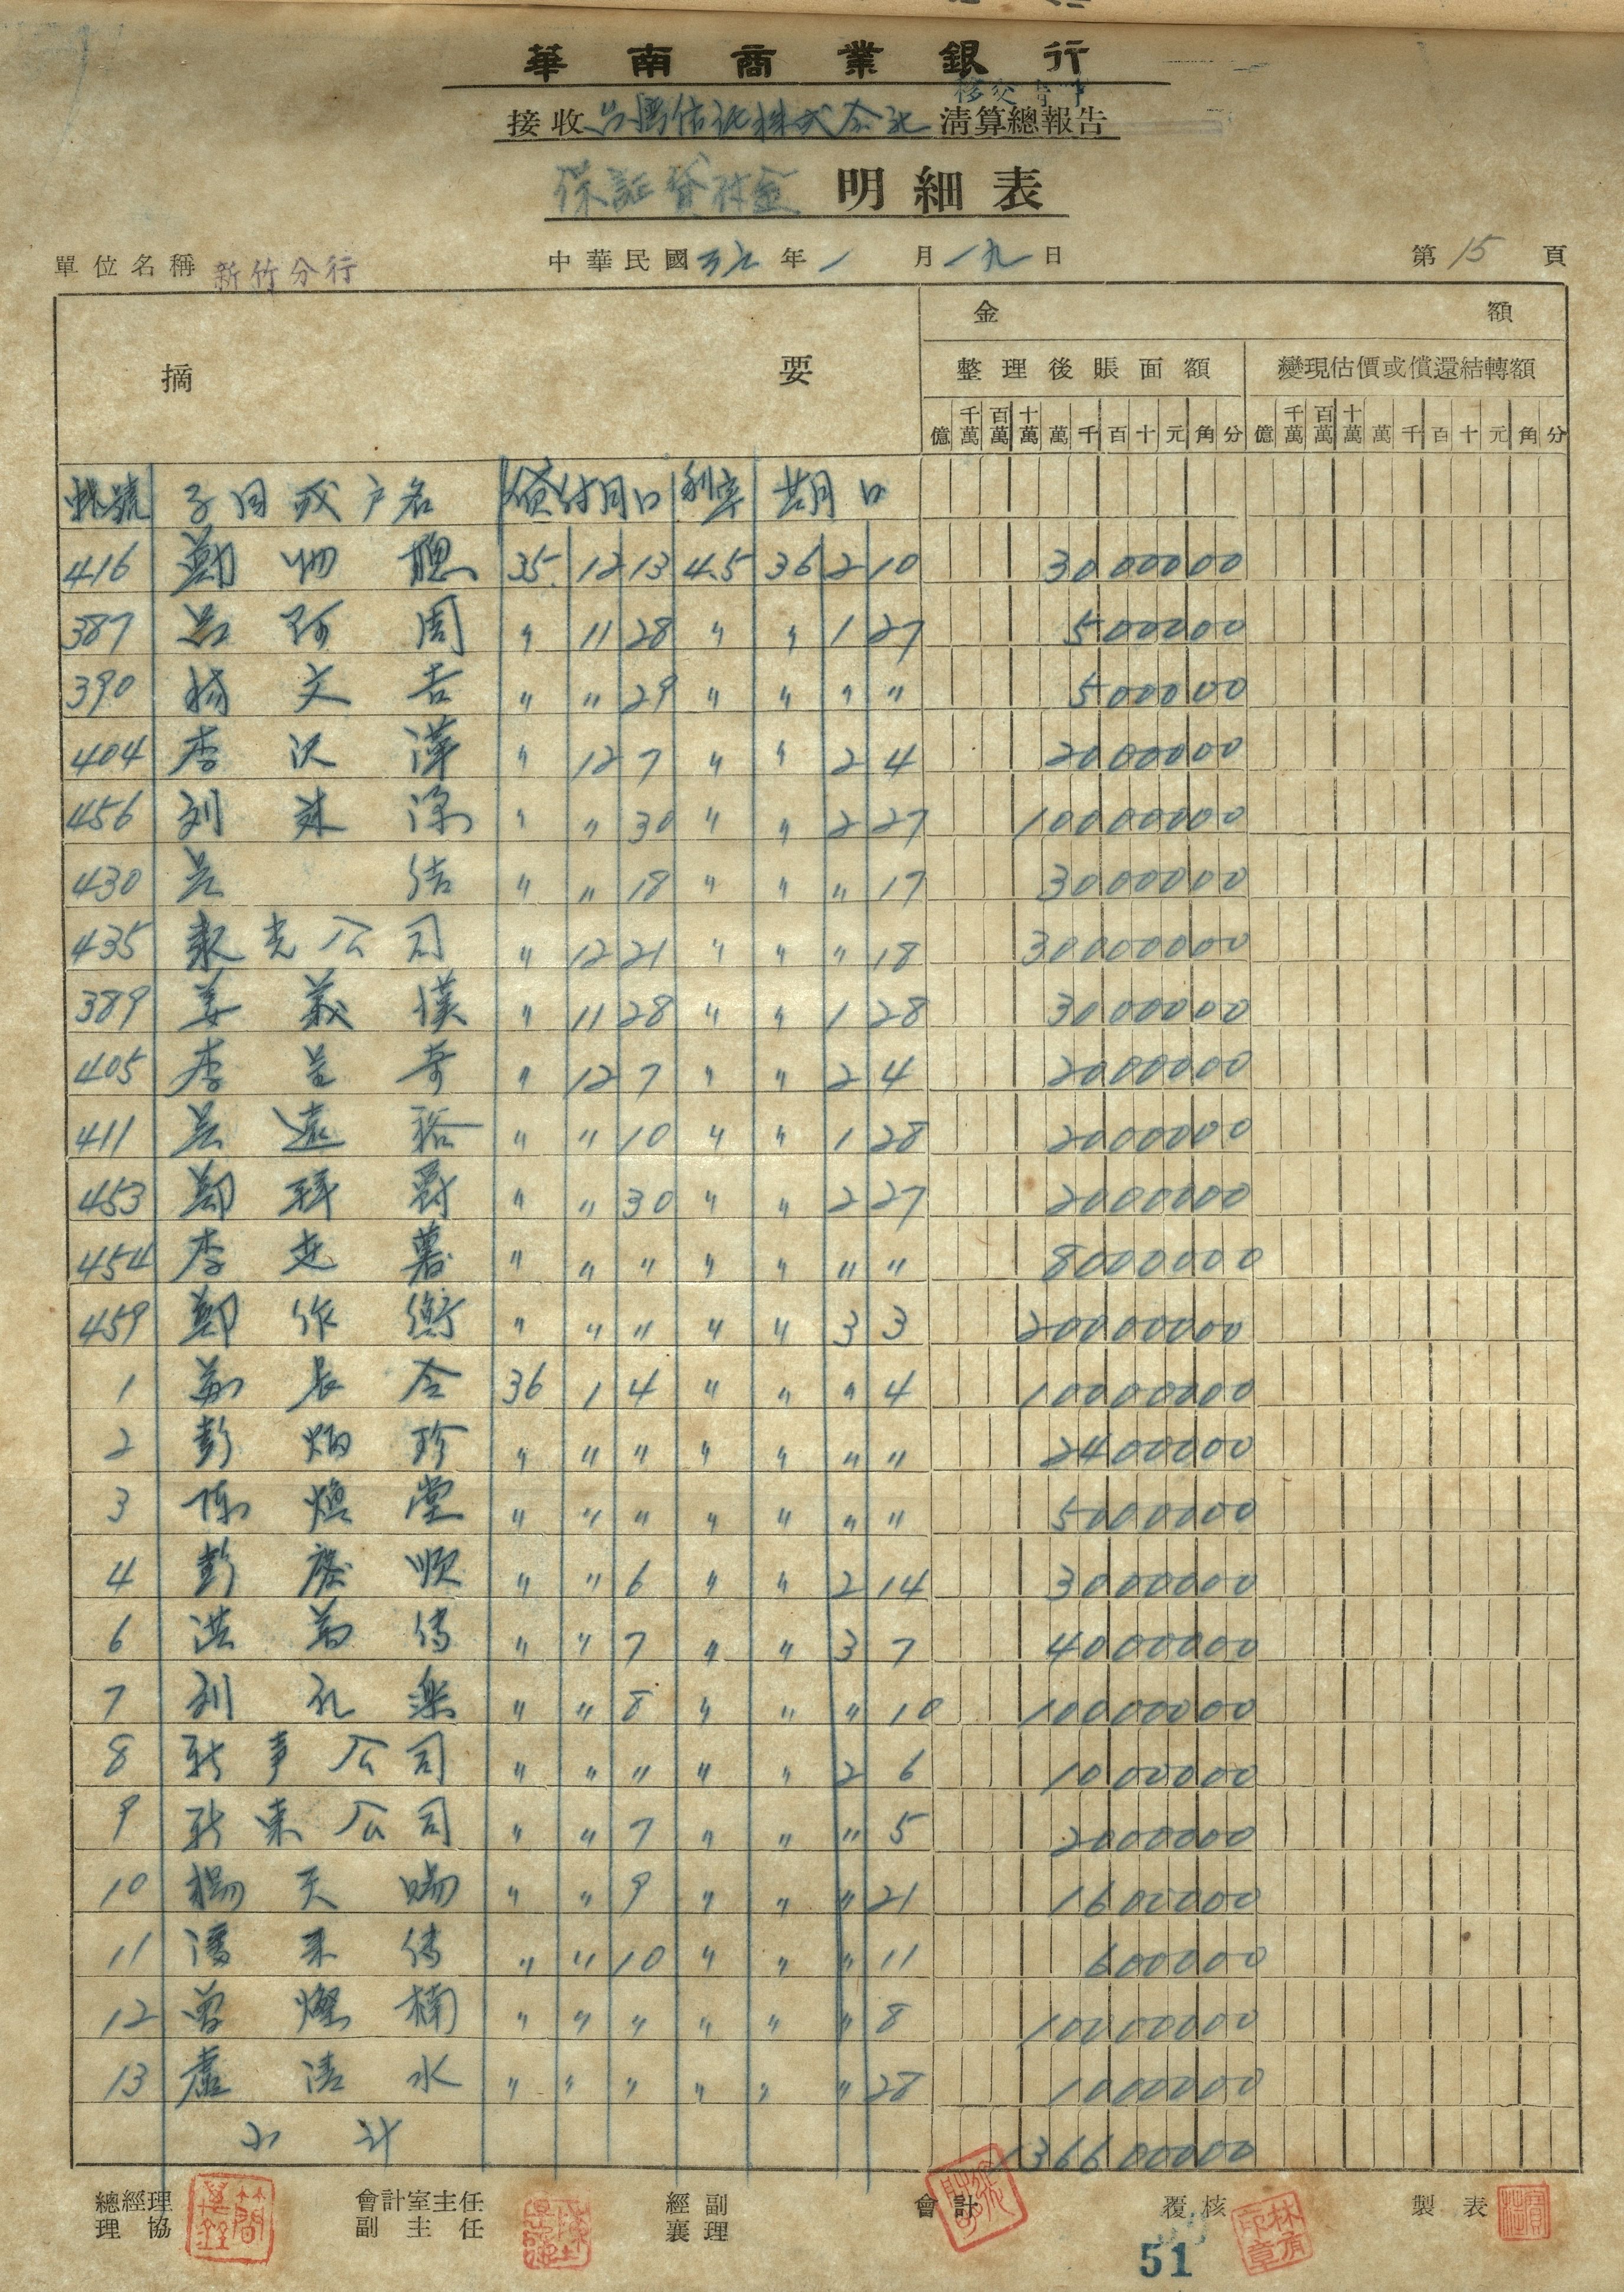 華南商業銀行
移交
接收台灣信託株式会社清算總報告
保証貸付金 明細表
單位名稱 新竹分行 中華民國三六年1月19日 第15頁
摘要 金額
整理後賬面額 變現估價或償還結轉額
億 千萬 百萬 十萬 萬 千 百 十 元 角 分 億 千萬 百萬 十萬 萬 千 百 十 元 角 分
帳號 子目或户名 貸付月日 利率 期日
416 鄭 聰 35 12 13 4.5 36 2 10 3000000
387 吳阿周 〃 11 28 〃 〃 1 27 500000
390 楊文吉 〃 〃 29 〃 〃 〃 〃 500000
404 李汉萍 〃 12 7 〃 〃 2 4 2000000
456 刘添 〃 〃 30 〃 〃 2 27 10000000
430 吳結 〃 〃 18 〃 〃 〃 17 3000000
435 光公司 〃 12 21 〃 〃 〃 18 30000000
389 姜義 〃 11 28 〃 〃 1 28 3000000
405 李奇 〃 12 7 〃 〃 2 4 2000000
411 吳遠裕 〃 〃 10 〃 〃 1 28 2000000
453 鄭拜爵 〃 〃 30 〃 〃 2 27 2000000
454 李 〃 〃 〃 〃 〃 〃 〃 8000000
459 鄭作衡 〃 〃 〃 〃 〃 3 3 20000000
1 長 36 1 4 〃 〃 〃 4 10000000
2 彭炳珍 〃 〃 〃 〃 〃 〃 〃 2400000
3 陳煥堂 〃 〃 〃 〃 〃 〃 〃 5000000
4 彭慶順 〃 〃 6 〃 〃 2 14 3000000
6 洪萬傳 〃 〃 7 〃 〃 3 7 4000000
7 刘孔樂 〃 〃 8 〃 〃 〃 10 10000000
8 新事公司 〃 〃 〃 〃 〃 2 6 1000000
9 新東公司 〃 〃 7 〃 〃 〃 5 2000000
10 楊天賜 〃 〃 9 〃 〃 〃 21 1600000
11 潘来傳 〃 〃 10 〃 〃 〃 11 600000
12 曾燦楠 〃 〃 〃 〃 〃 〃 8 10000000
13 盧清水 〃 〃 〃 〃 〃 〃 28 1000000
小計 136600000
總經理 會計室主任 經副 會計 覆核 製表
理協 副主任 襄理
林有印章
51